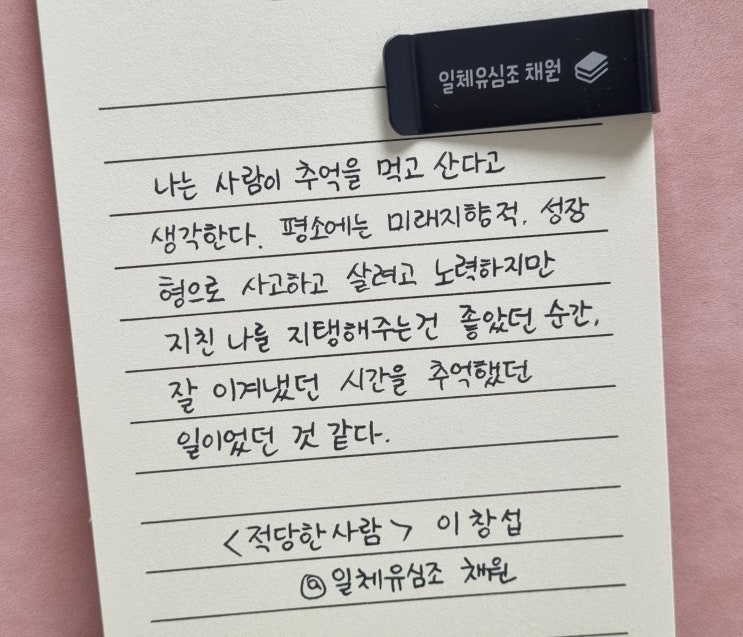 일체유심조 채원
나는 사람이 추억을 먹고 산다고
생각한다. 평소에는 미래지향적, 성장
형으로 사고하고 살려고 노력하지만
지친 나를 지탱해주는건 좋았던 순간,
잘 이겨냈던 시간을 추억했던
일이었던 것 같다.
<적당한사람> 이창섭
@일체유심조 채원